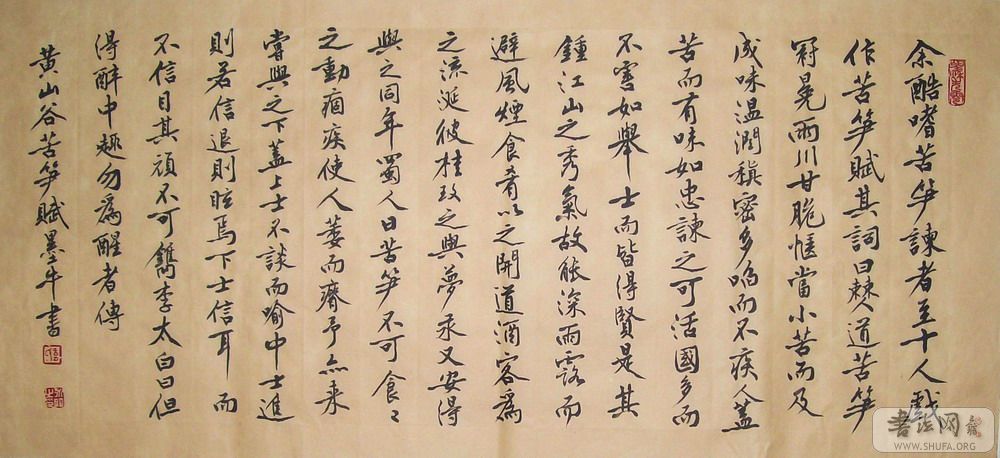 余酷嗜苦笋諫者至十人戲
作苦笋賦其詞曰僰道苦笋
冠冕兩川甘脆愜當小苦而及
成味温潤稹密多啗而不疾人蓋
苦而有味如忠諫之可活國多而
不害如舉士而皆得賢是其
鍾江山之秀氣故能深雨露而
避風煙食肴以之開道酒客為
之流涎彼桂玫之與夢汞又安得
與之同年蜀人曰苦笋不可食々
之動痼疾使人萎而瘠予亦未
嘗與之下蓋上士不談而喻中士進
則若信退則眩焉下士信耳而
不信目其頑不可鐫李太白曰但
得醉中趣勿為醒者傳
黄山谷苦笋賦墨牛書
書法网
WWW.SHUFA.ORG